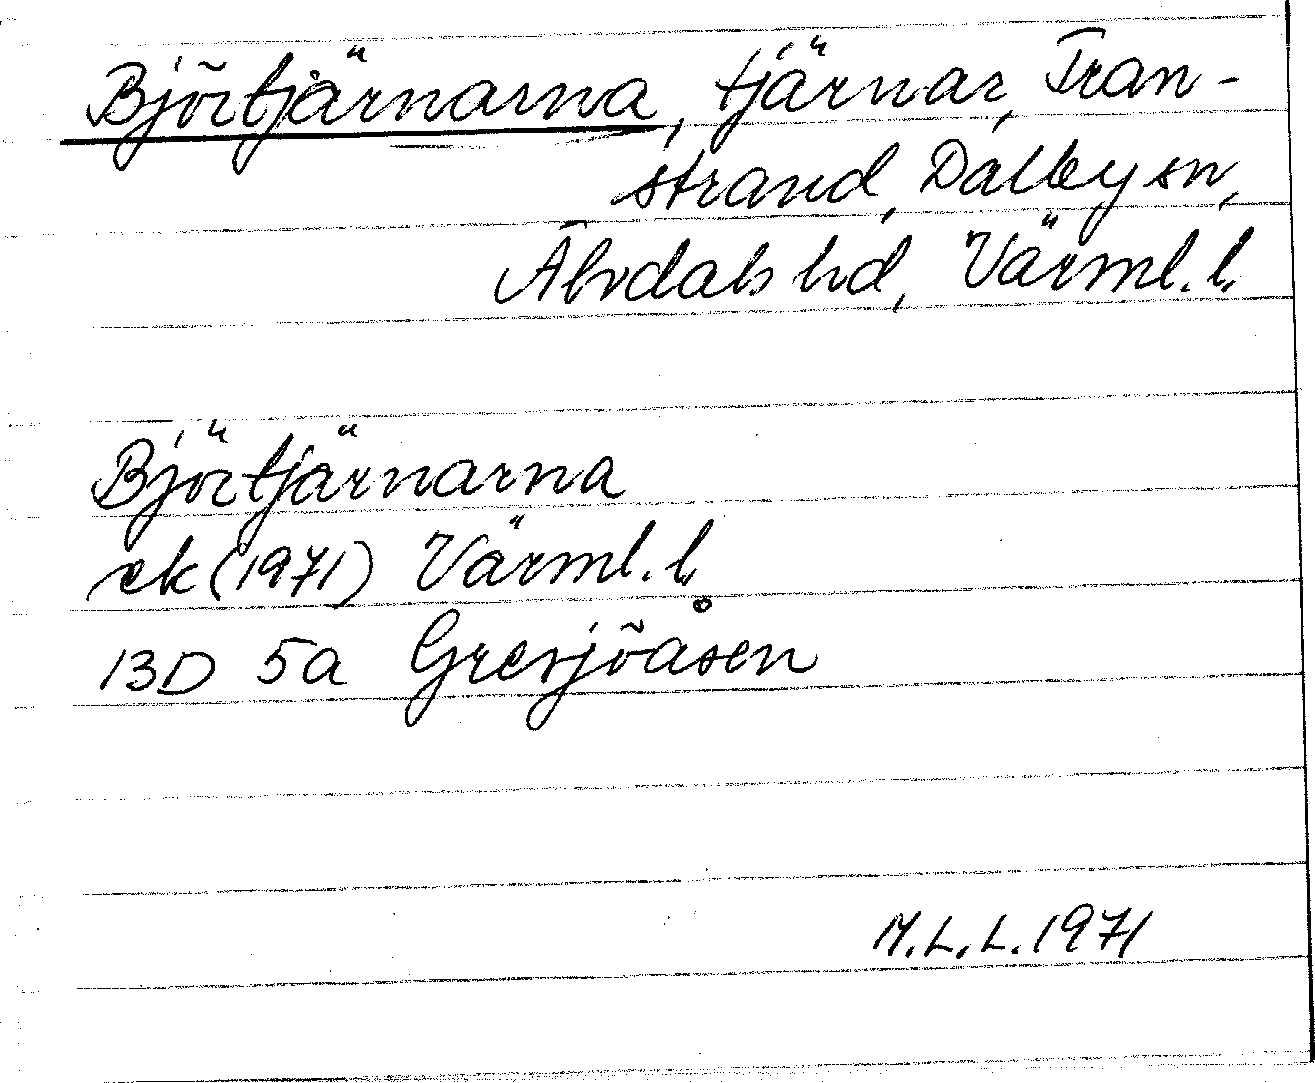 Björtjärnarna, tjärnar, Tran-
strand, Dalby sn,
Älvdals hd, Värml. l.
Björtjärnarna
ek (1971) Värml. l.
13D 5a Gresjöåsen
M.L.L. 1971